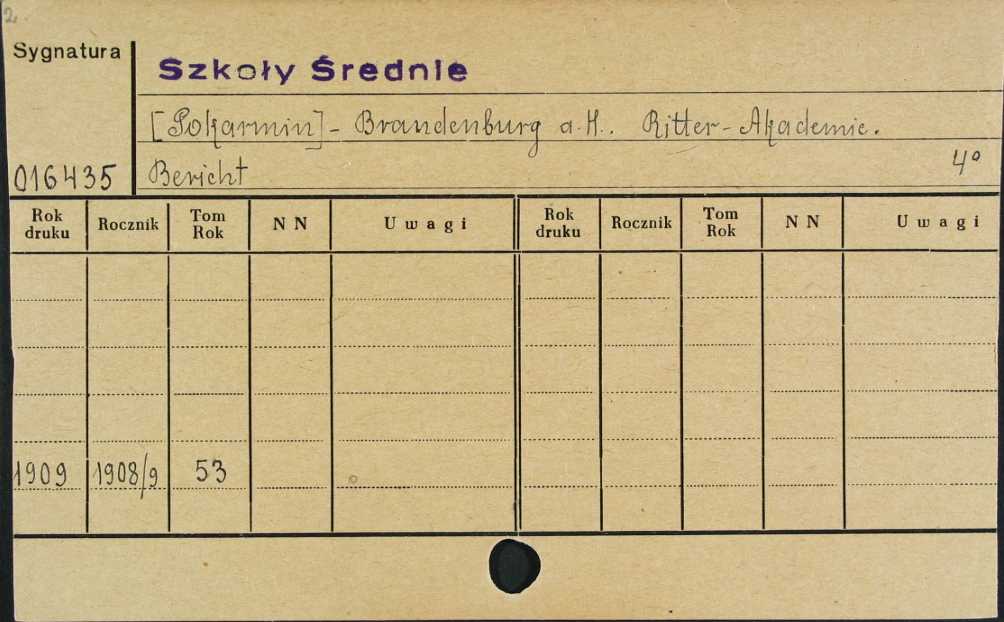 2.
Sygnatura
Szkoły Średnie
[Pokarmin] - Brandenburg a.H.. Ritter-Akademie.
016435 Bericht 4°
Rok druku Rocznik Tom Rok N N Uwagi Rok druku Rocznik Tom Rok N N Uwagi
1909 1908/9 53